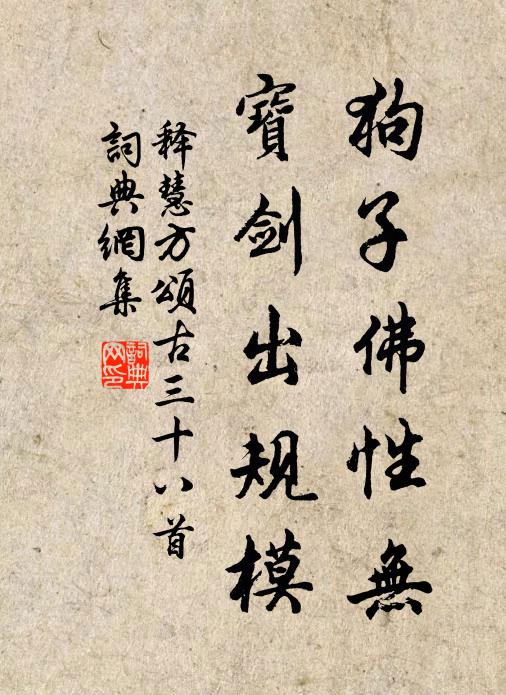 狗子佛性無
寶剑出规模
释慧方頌古三十八首
詞典網集
詞典
网印